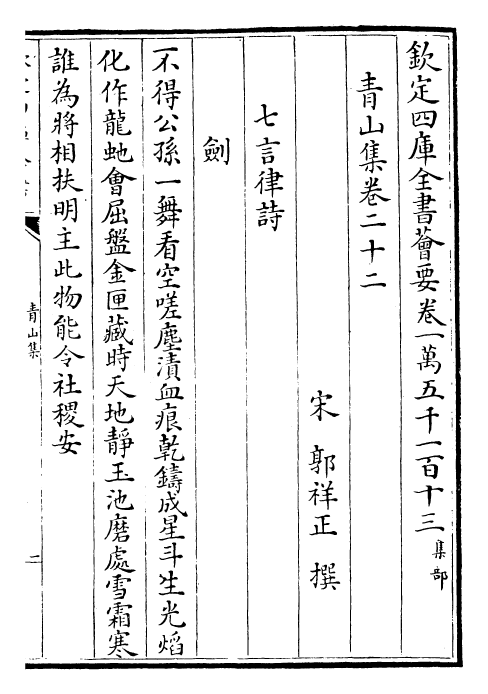 欽定四庫全書薈要卷一萬五千一百十三集部
青山集卷二十二
宋郭祥正撰
七言律詩
劍
不得公孫一舞看空嗟塵漬血痕乾鑄成星斗生光焰
化作龍虵會屈盤金匣藏時天地靜玉池磨處雪霜寒
誰為將相扶明主此物能令社稷安
青山集
二